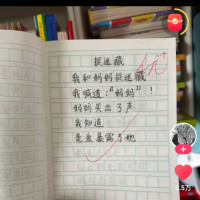 捉迷藏
我和妈妈捉迷藏
我喊道："妈妈"！
妈妈笑出了声
我知道
是爱暴露了她
6.5万